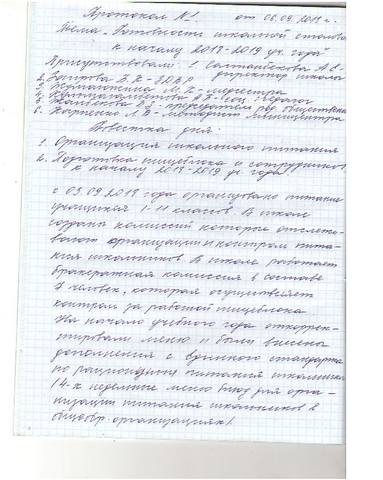 Протокол №1. от 06.09.2018 г.
Тема „Готовность школьной столовой
к началу 2018-2019 уч. года"
Присутствовали: 1. Салтанбекова А.С-
директор школы
2. Б.К - ЗДВР
3. М.К. - медсестра
4. соц. педагог
5. - председатель род. общественн
6. Л.В - методист
Повестка дня:
1. Организация школьного питания
2. Подготовка пищеблока и сотрудников
к началу 2018-2019 уч года
с 03.09.2018 года организовано питание
учащихся 1-11 классов. В школе
созданы комиссий которые отслежи-
вают организации и контроль пита-
ния школьников. В школе работает
бракеражная комиссия в составе
7 человек, которая осуществляет
контроль за работой пищеблока
На начало учебного года откоррек-
тировали меню и были внесены
дополнения с единого стандарта
по рациону питания школьника
(4-х недельное меню блюд для орга-
низации питания школьников в
общеобр. организациях)